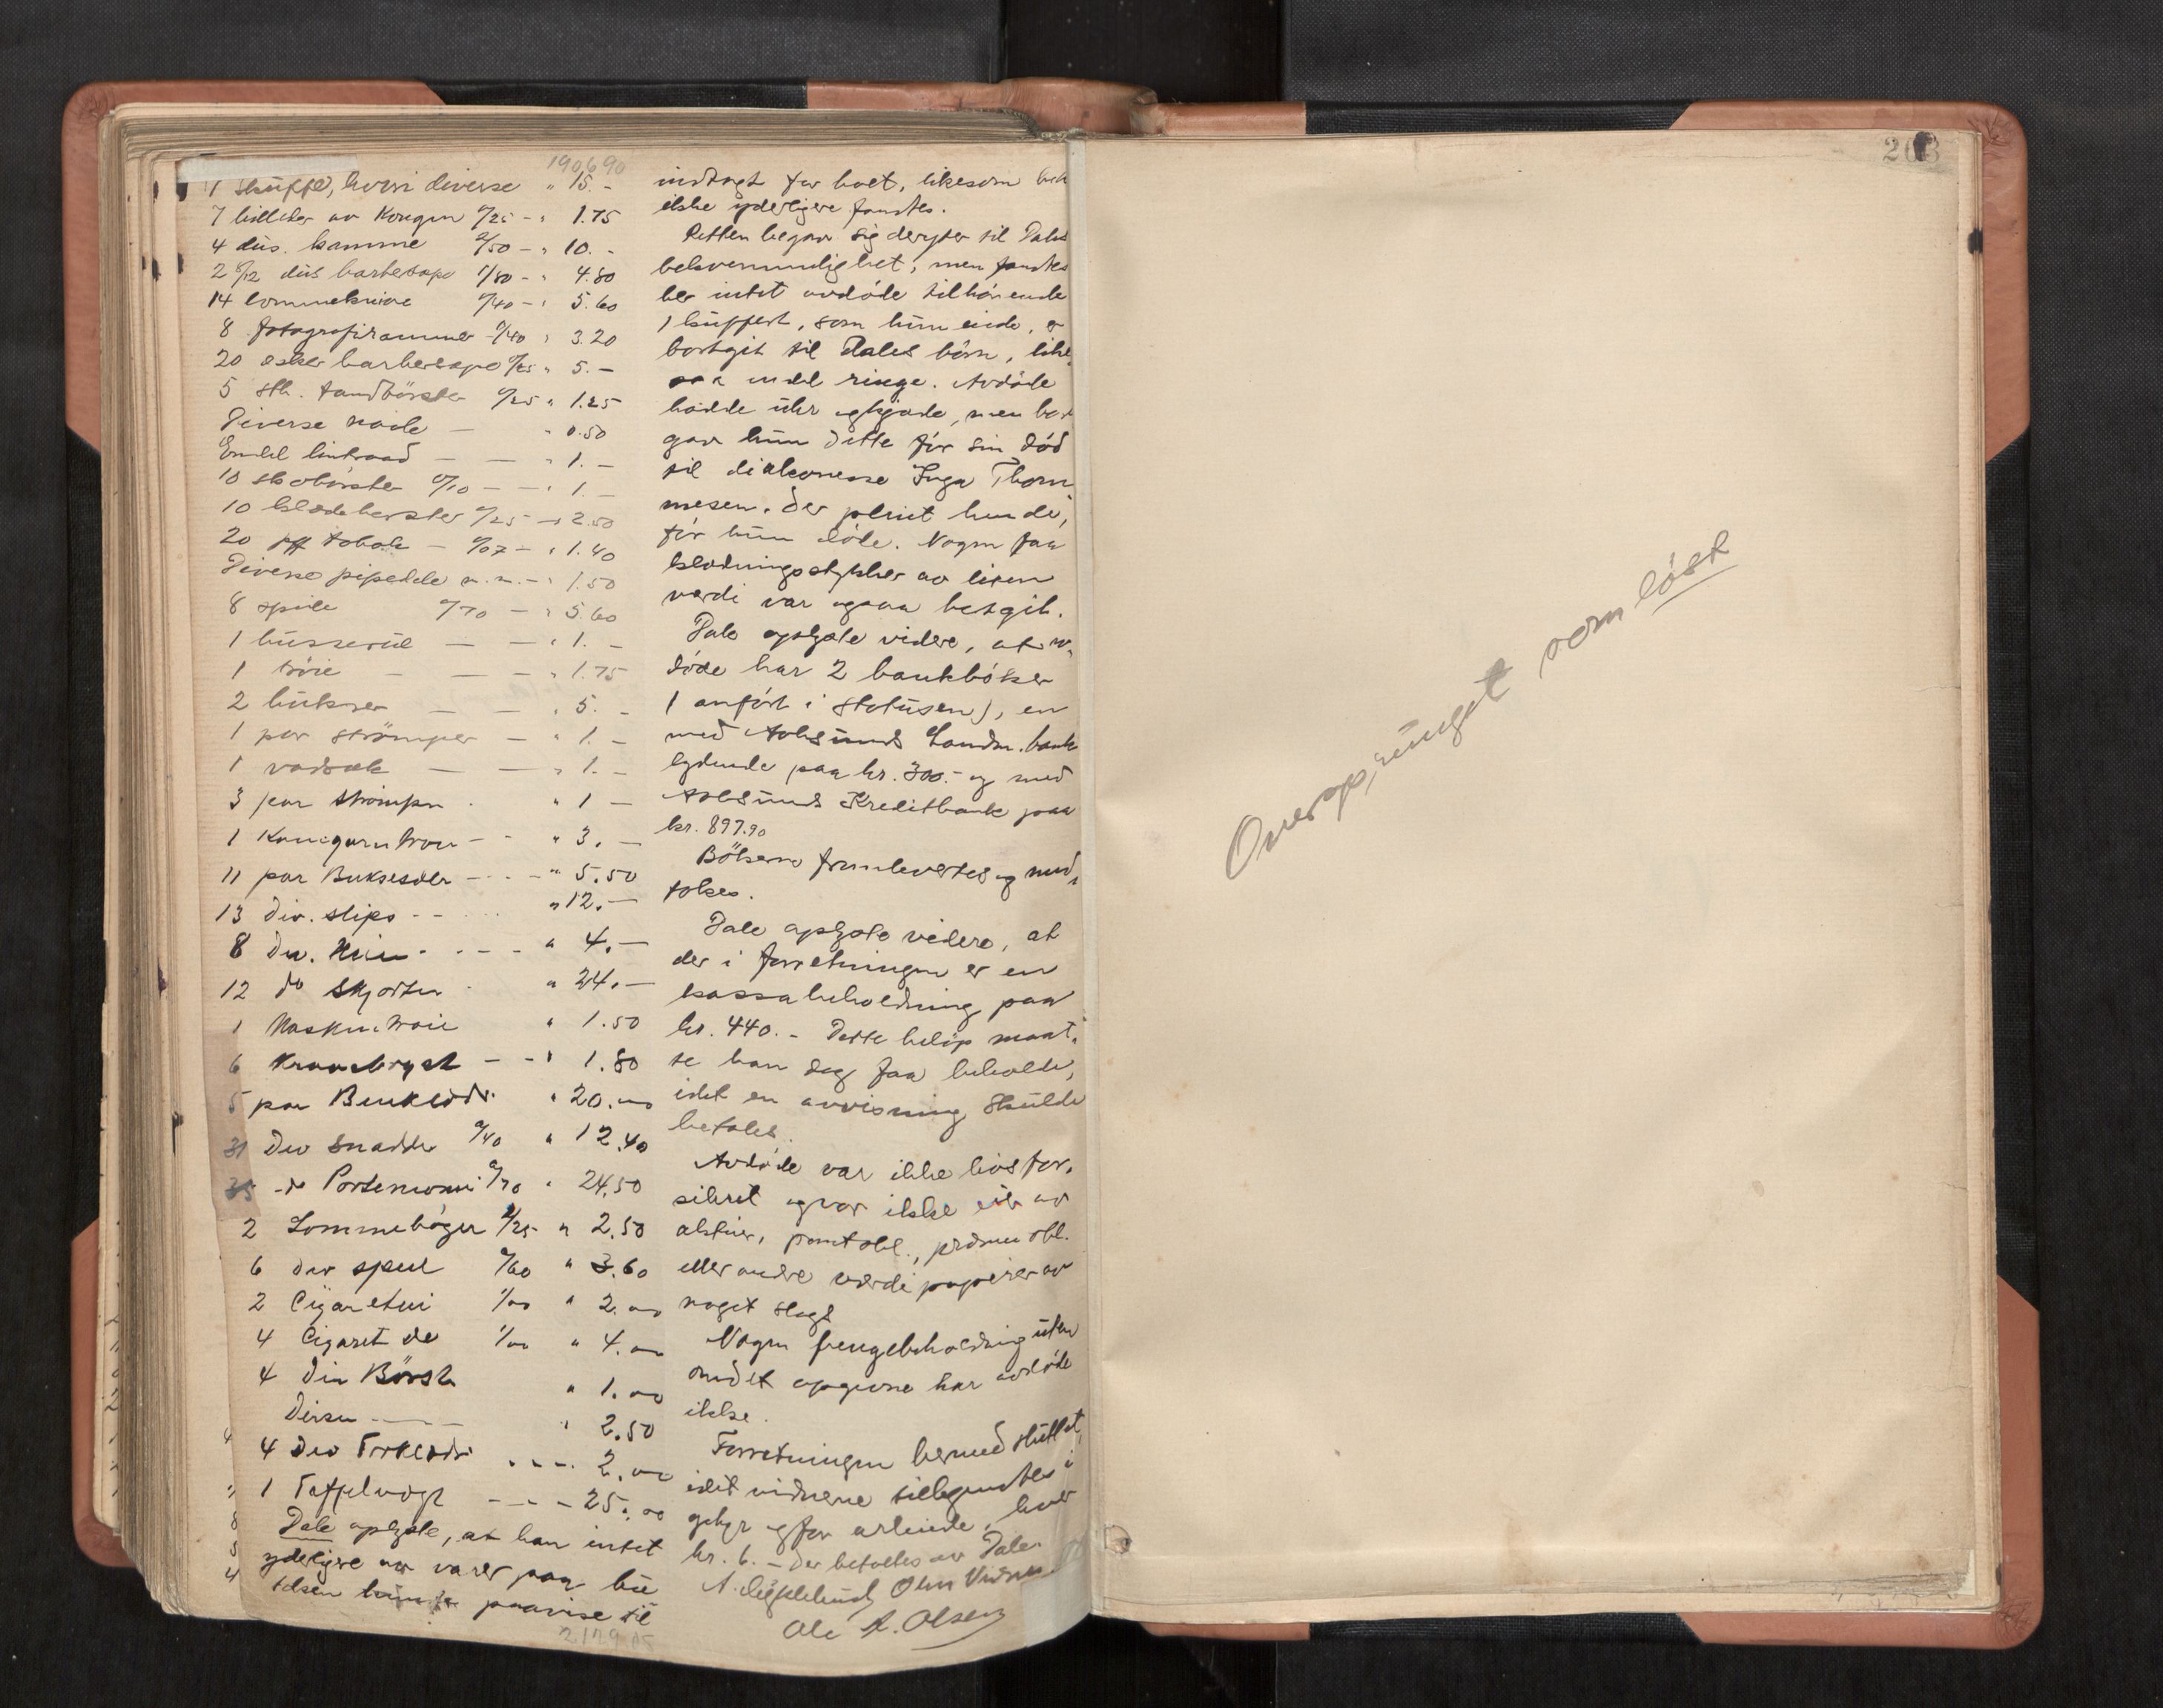 190690
1 skuffe, hvori diverse " 15.-
7 billeder av Kongen 0/25 - " 1.75
4 dus. kamme 2/50 - " 10.-
2 8/12 dus barbersape 1/80 - " 4.80
14 lommeknive 0/40 - " 5.60
8 fotografirammer 0/40 " 3.20
20 esker barbersape 0/25 " 5.-
5 stk. tandbörster 0/25 " 1.25
Diverse naale — " 0.50
Endel lintraad — — " 1.-
10 skobörster 0/10 — — " 1.-
10 klædebørster 0/25 — " 2.50
20 pk tobak — 0/07 — " 1.40
Diverse pipedele m.m. — " 1.50
8 speile 0/70 — " 5.60
1 busserul — — " 1.-
1 tröie — — — " 1.75
2 bukser — — " 5.-
1 par strömper — " 1.-
1 vadsæk — — " 1.-
3 par strömper " 1 —
1 Kamgarn troie - - " 3.—
11 par Buksesæler - - - " 5.50
13 div. slips - - " 12.—
8 Div. - - - " 4.—
12 do Skjorter " 24.—
1 troie " 1.50
6 - - " 1.80
5 par " 20.00
31 Div Snadder 0/40 " 12.40
35 do Portemonni 0/70 " 24.50
2 Lommebøger 1/25 " 2.50
6 div speil 0/60 " 3.60
2 Cigar etui 1/00 " 2.00
4 Cigaret do 1/00 " 4.00
4 Div Börste " 1.00
Diverse — — " 2.50
4 Div - - - 2.00
1 Taffelvægt - - - 25.00
Dale oplyste, at han intet
yderligere av varer paa bu
telsen kunde paavise til
2129.05
indtægt for boet, likesom
ikke yderligere fandtes.
Retten begav sig derefter til Dales
bekvemmelighet, men fandtes
her intet avdöde tilhörende
1 kuffert, som hun eiede, er
bortgit til Dales börn, like
saa endel ringe. Avdöde
hadde uhr og kjæde, men
gav hun dette för sin död
til diakonesse Inga Thom
mesen, der pleiet hende,
för hun döde. Nogen faa
klædningsstykker av liten
værdi var ogsaa bortgit.
Dale oplyste videre, at av
döde har 2 bankböker
(anfört i statusen), en
med Aalesunds Landm.bank
lydende paa kr. 300.- og med
Aalesunds Kreditbank paa
kr. 897.90
Bökerne fremlevertes og med
toges.
Dale oplyste videre, at
der i forretningen er en
kassabeholdning paa
kr. 440.- Dette belöp maat
te han dog faa beholde,
idet en anvisning skulde
betales.
Avdöde var ikke livsfor
sikret og var ikke eier av
aktier, pantobl., præmieobl.
eller andre værdipapirer av
noget slags
Nogen pengebeholdning uten
om det opgivne har avdöde
ikke.
Forretningen hermed sluttet,
idet vidnerne tilkjendtes i
gebyr og for arbeide, hver
kr. 6.- Der betaltes av Dale.
Ole A. Olsen
203
Oversprunget som löst